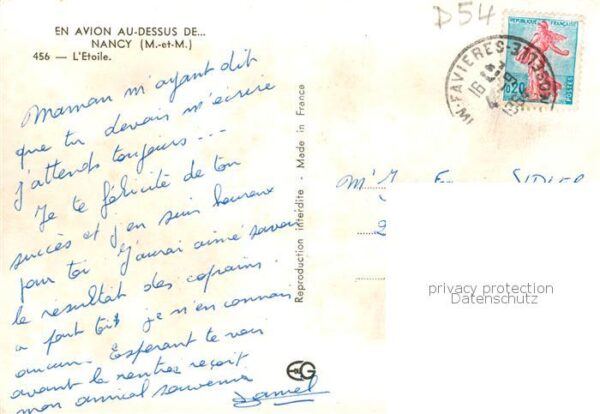 D54
EN AVION AU-DESSUS DE...
NANCY (M.-et-M.)
456 — L'Etoile.
REPUBLIQUE FRANÇAISE
0,20
POSTES
FAVIERES
MOSELLE
16
Maman m'ayant dit
que tu devais m'écrire
j'attends toujours ...
Je te félicite de ton
succès et j'en suis heureux
pour toi. J'aurai aimé savoir
le résultat des copains.
a part toi je n'en connais
aucun. Espérant te voir
avant la rentrée reçoit
mon amical souvenir
Reproduction interdite - Made in France
SIDLER
privacy protection
Datenschutz